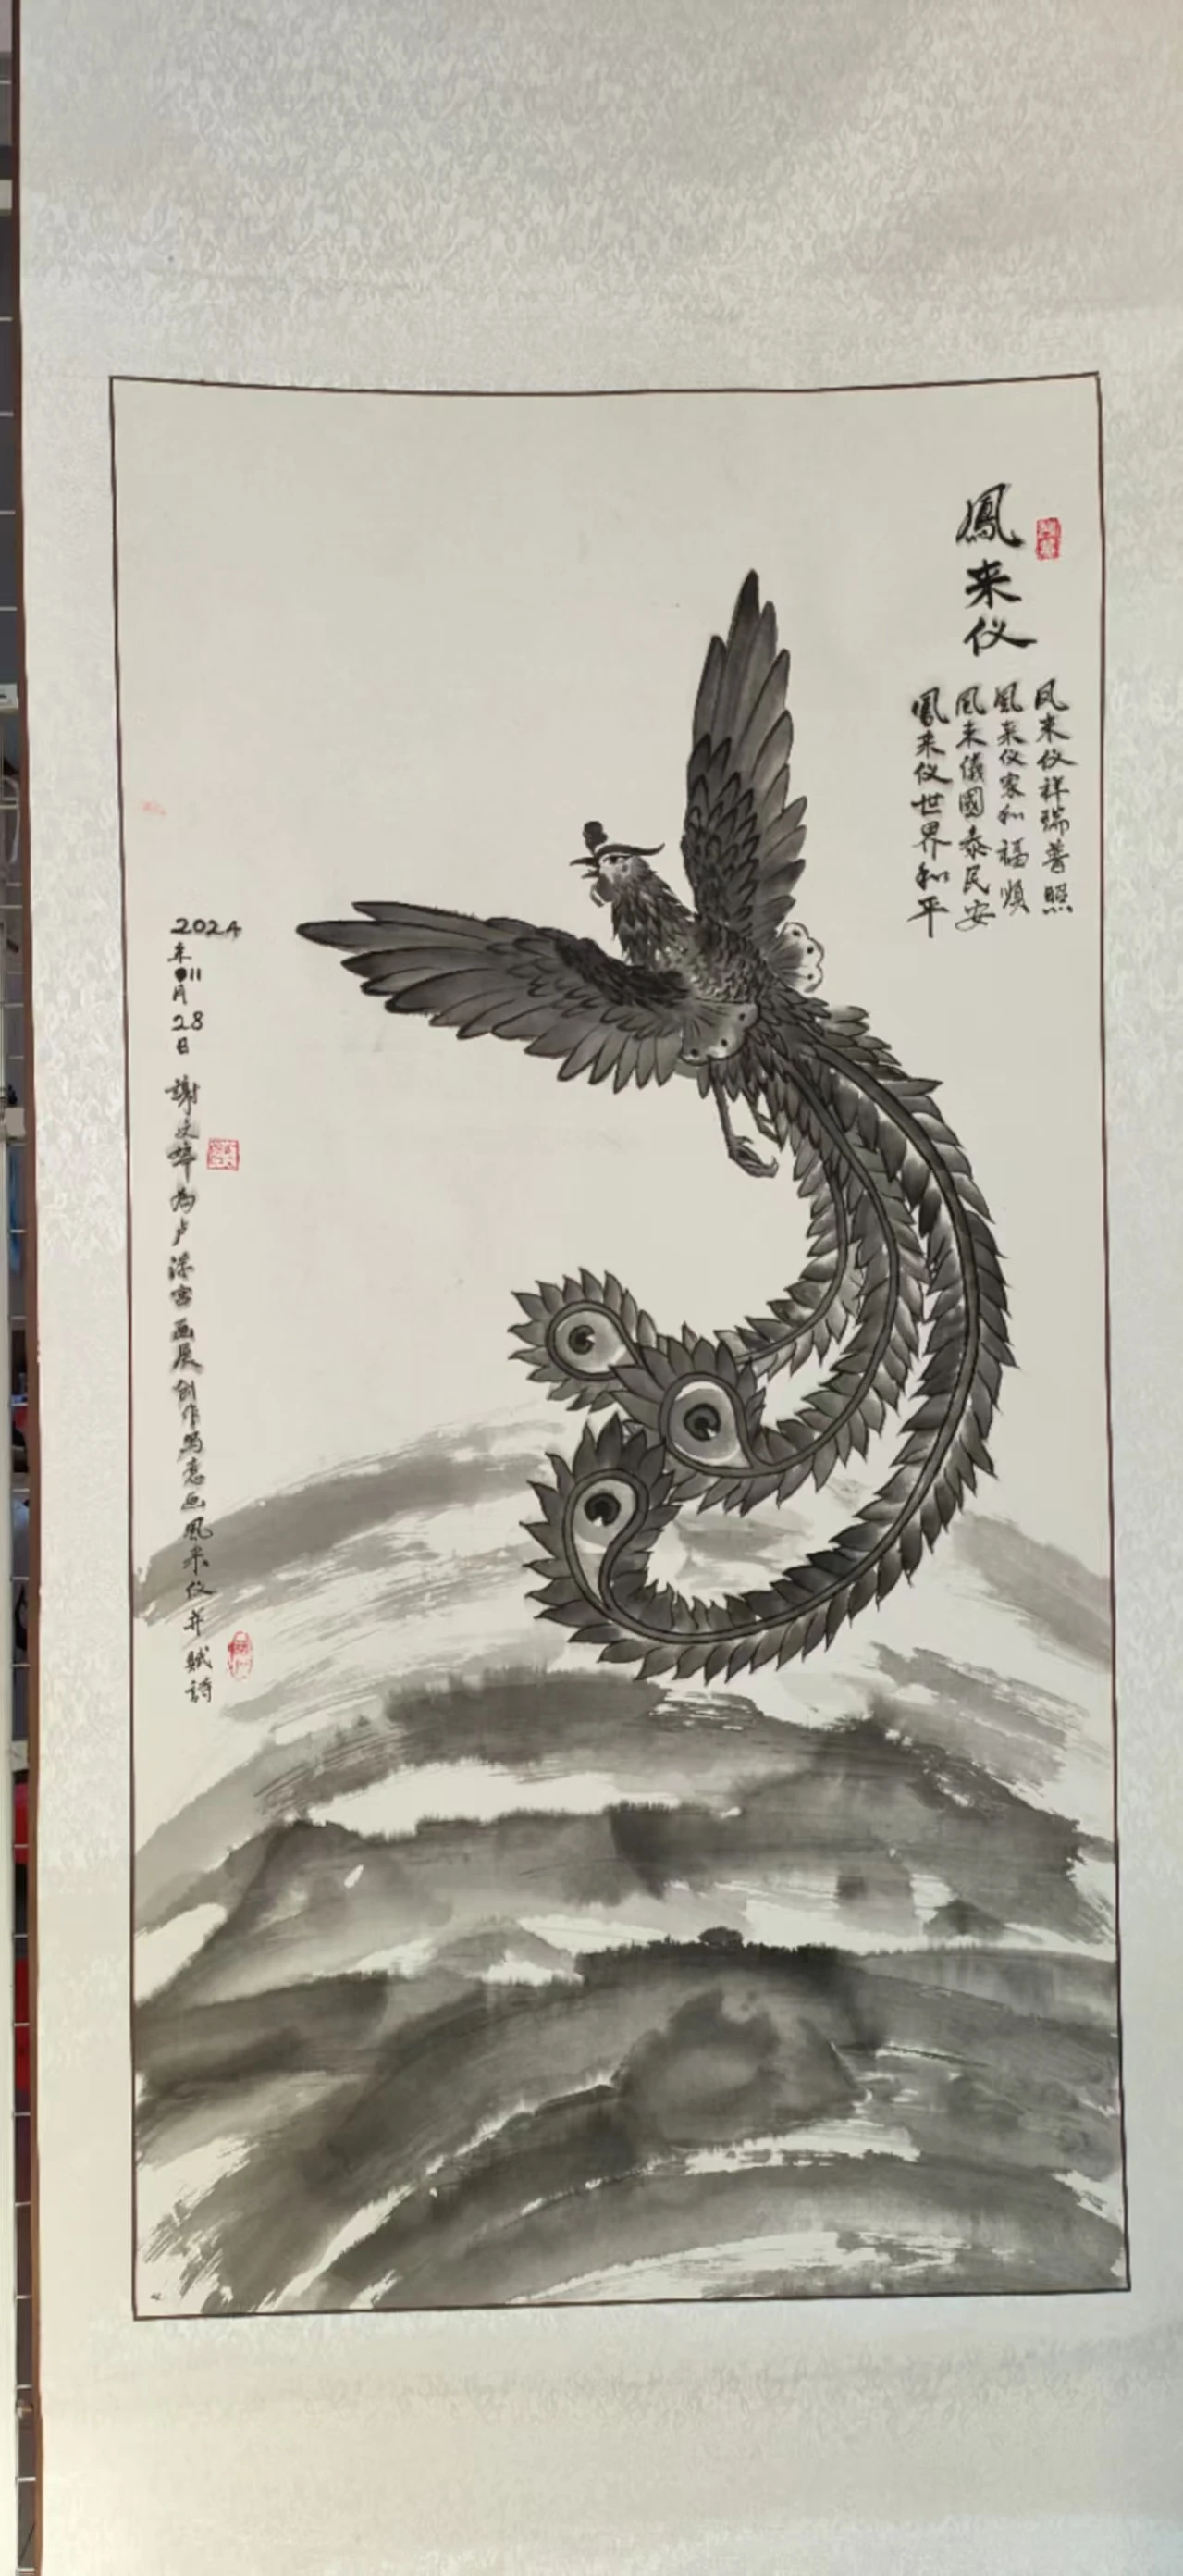 鳳来仪
凤来仪祥瑞普照
凰来仪家和福順
凨来儀國泰民安
鳳来仪世界和平
2024年11月28日 謝文 为卢浮宫画展创作写意画凤来仪并赋詩